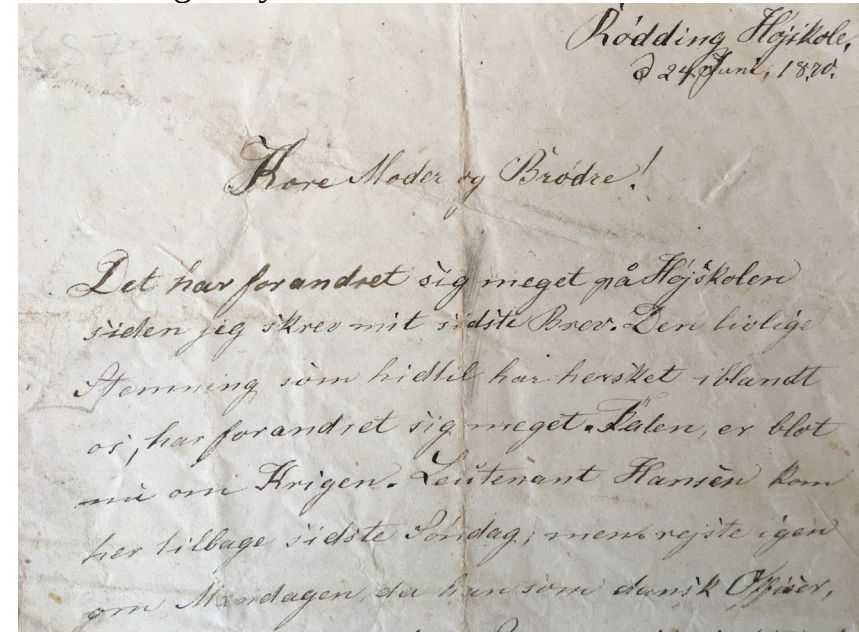 Rödding Højskole,
d 24 Juni, 1870.
Kære Moder og Brødre!
Det har forandret sig meget på Højskolen
siden jeg skrev mit sidste Brev. Den livlige
Stemning som hidtil har hersket iblandt
os, har forandret sig meget. Talen, er blot
nu om Krigen. Leutenant Hansen kom
her tilbage sidste Søndag, men rejste igen
om Mandagen, da han som dansk Officer,